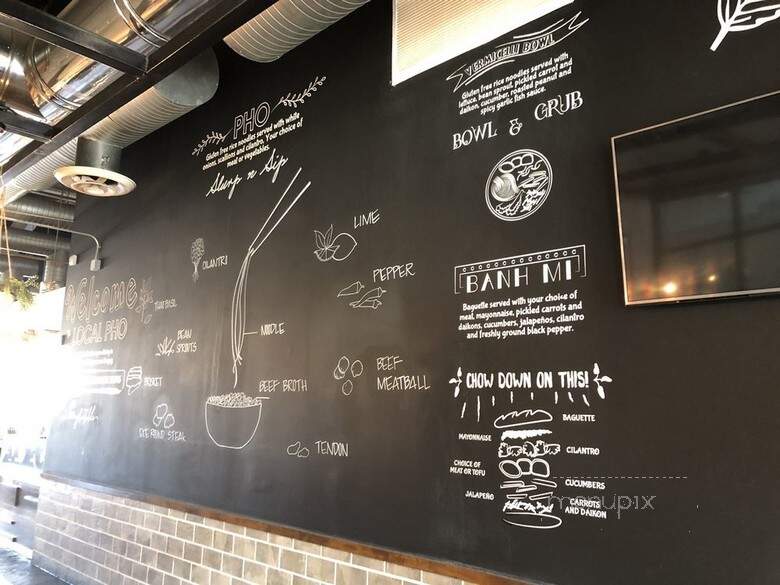 Welcome
LOCAL PHO
THAI BASIL
CILANTRI
BEAN
SPRITS
BRISKET
EYE ROUND STEAK
PHO
Gluten free rice noodles served with white
onions, scallions and cilantro. Your choice of
meat or vegetables.
Slurp n Sip
NOODLE
BEEF BROTH
LIME
PEPPER
BEEF
MEATBALL
TENDON
VERMICELLI BOWL
Gluten free rice noodles served with
lettuce, bean sprout, pickled carrot and
daikon, cucumber, roasted peanut and
spicy garlic fish sauce.
BOWL & GRUB
BANH MI
Baguette served with your choice of
meat, mayonnaise, pickled carrots and
daikons, cucumbers, jalapeños, cilantro
and freshly ground black pepper.
CHOW DOWN ON THIS!
BAGUETTE
MAYONNAISE
CILANTRO
CHOICE OF
MEAT OR TOFU
CUCUMBERS
JALAPEÑO
CARROTS
AND DAIKON
menupix